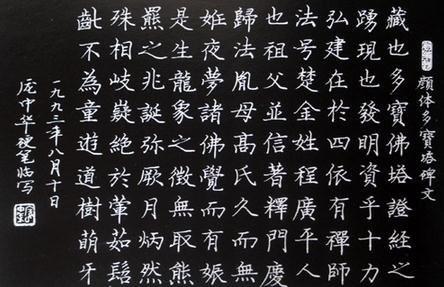 顔体多寶塔碑文
藏也多寶佛塔證經之
踴現也發明資乎十力
弘建在於四依有禪師
法号楚金姓程廣平人
也祖父並信著釋門慶
歸法胤母高氏久而無
姙夜夢諸佛覺而有娠
是生龍象之徵無取熊
羆之兆誕弥厥月炳然
殊相岐嶷絶於葷茹髫
齔不為童遊道樹萌牙
一九九三年八月十日
庞中华硬笔临写